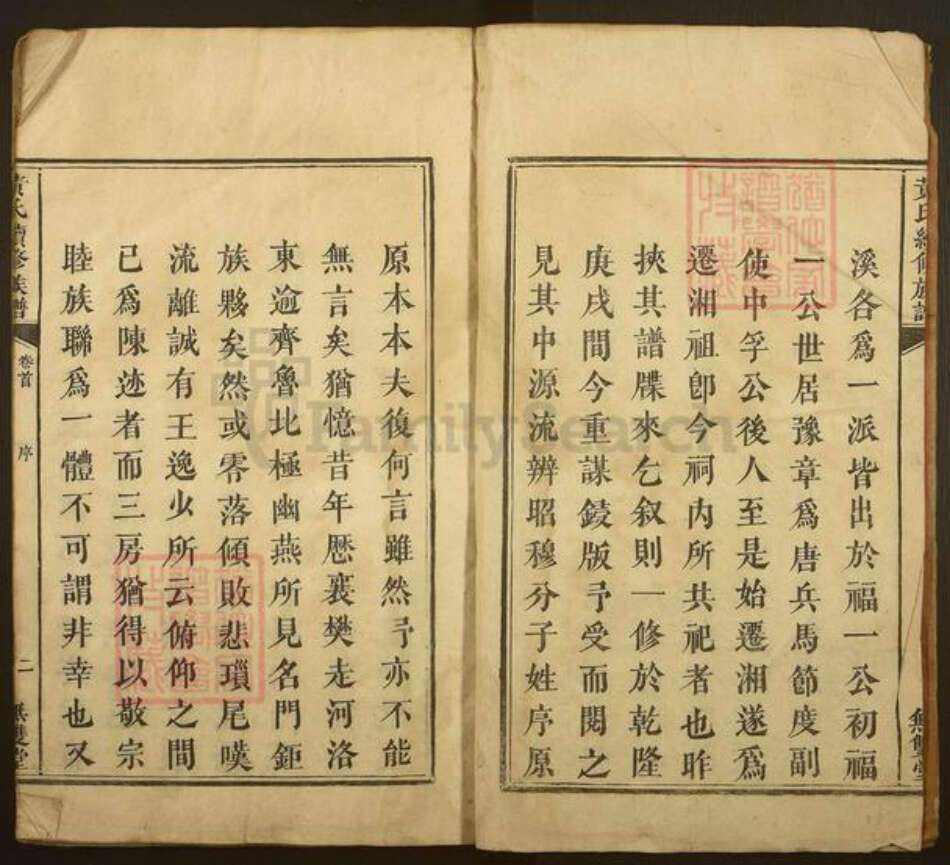 黃氏續修族譜
溪各爲一派皆出於福一公初福
一公世居豫章爲唐兵馬節度副
使中孚公後人至是始遷湘遂爲
遷湘祖卽今祠內所共祀者也昨
挾其譜牒來乞叙則一修於乾隆
庚戌間今重謀鋟版予受而閱之
見其中源流辨昭穆分子姓序原
原本本夫復何言雖然予亦不能
無言矣猶憶昔年歷襄樊走河洛
東逾齊魯北極幽燕所見名門鉅
族夥矣然或零落傾敗悲瑣尾嘆
流離誠有王逸少所云俯仰之間
已爲陳迹者而三房猶得以敬宗
睦族聯爲一體不可謂非幸也又
黃氏續修族譜 卷首 序 二 無雙堂
FamilySearch